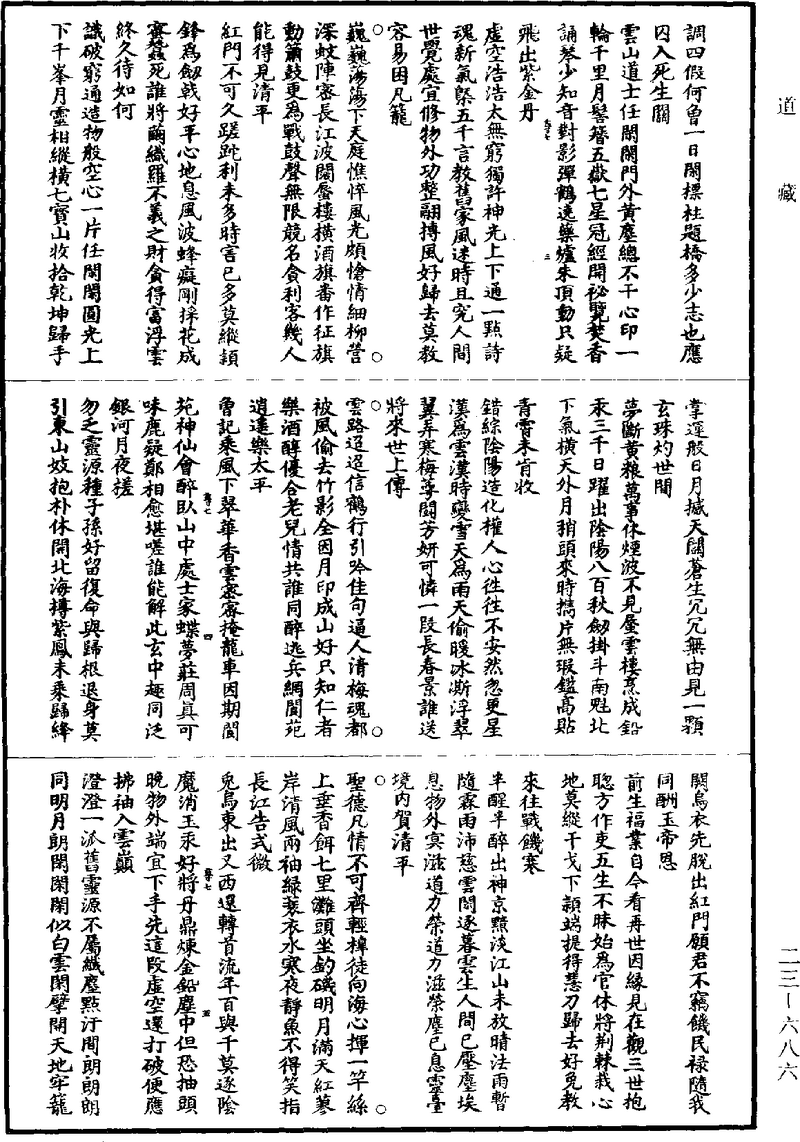 道藏
調四假何曾一日閑標柱題橋多少志也應
囚入死生關
雲山道士任閑閑門外黃塵總不干心印一
輪千里月髻簪五嶽七星冠經開祕覽焚香
誦琴少知音對影彈鶴遶藥爐朱頂動只疑
飛出紫金丹
虛空浩浩太無窮獨許神光上下通一點詩
魂新氣槩五千言教舊家風迷時且究人間
世覺處宜修物外功整翮摶風好歸去莫教
容易困凡籠
巍巍蕩蕩下天庭憔悴風光頗愴情細柳營
深蚊陣密長江波闊蜃樓橫酒旗番作征旗
動簫鼓更為戰鼓聲無限競名貪利客幾人
能得見清平
紅門不可久蹉跎利未多時害已多莫縱頴
鋒為劒戟好平心地息風波蜂癡剛採花成
蜜蠶死誰將繭織羅不義之財貪得富浮雲
終久待如何
識破窮通造物般空心一片任閑閑圓光上
下千峯月靈相縱橫七寶山收拾乾坤歸手
掌運般日月撼天關蒼生冗冗無由見一顆
玄珠灼世間
夢斷黃粮萬事休煙波不見蜃雲樓烹成鉛
汞三千日躍出陰陽八百秋劒掛斗南魁北
下氣橫天外月稍頭來時擕片無瑕鑑高貼
青霄未肯收
錯綜陰陽造化權人心徃徃不安然忽更星
漢為雲漢時變雪天為雨天偷暖冰澌浮翠
翼弄寒梅蕚鬪芳妍可憐一段長春景誰送
將來世上傳
雲路迢迢信鶴行引吟佳句逼人清梅魂都
被風偷去竹影全因月印成山好只知仁者
樂酒醇優合老兒情共誰同醉逃兵網閬苑
逍遙樂太平
曾記乘風下翠華香雲密密掩龍車因期閬
苑神仙會醉臥山中處士家蝶夢莊周真可
味鹿疑鄭相愈堪嗟誰能解此玄中趣同泛
銀河月夜槎
勿乏靈源種子孫好留復命與歸根退身莫
引東山妓抱朴休開北海摶紫鳳未乘歸絳
闕烏衣先脫出紅門願君不竊饑民祿隨我
同酬玉帝恩
前生福業自今看再世因緣見在觀三世抱
聦方作吏五生不昧始為官休將荆棘栽心
地莫縱干戈下頴端提得慧刀歸去好免教
來往戰饑寒
半醒半醉出神京黯淡江山未放晴法雨暫
隨霖雨沛慈雲閑逐暮雲生人間已壓塵埃
息物外寅滋道力榮道力滋榮塵已息靈臺
境內賀清平
聖德凡情不可齊輕棹徒向海心揮一竿絲
上垂香餌七里灘頭坐釣磯明月滿天紅蓼
岸清風兩袖綠蓑衣水寒夜靜魚不得笑指
長江告式微
兔烏東出又西還轉首流年百與千莫逐陰
魔消玉汞好將丹鼎煉金鉛塵中但恐抽頭
晚物外端宜下手先這叚虛空還打破便應
拂袖入雲巔
澄澄一派舊靈源不屬纖塵點汙間朗朗朗
同明月朗閑閑閑似白雲閑擘開天地牢籠
二三—六八六